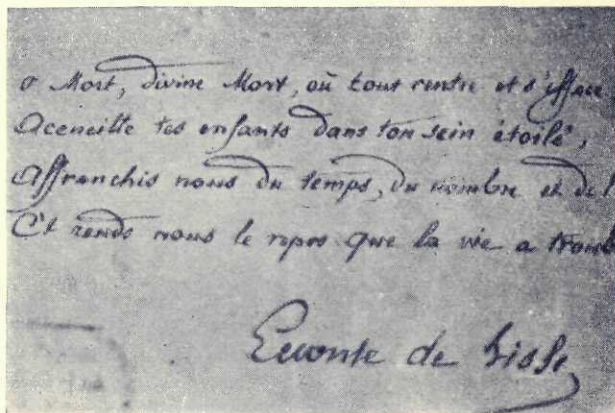 O Mort, divine Mort, où tout rentre et s'efface
Accueille tes enfants dans ton sein étoilé,
Affranchis nous du temps, du nombre et de l
Et rends nous le repos que la vie a troubl
Leconte de Lisle